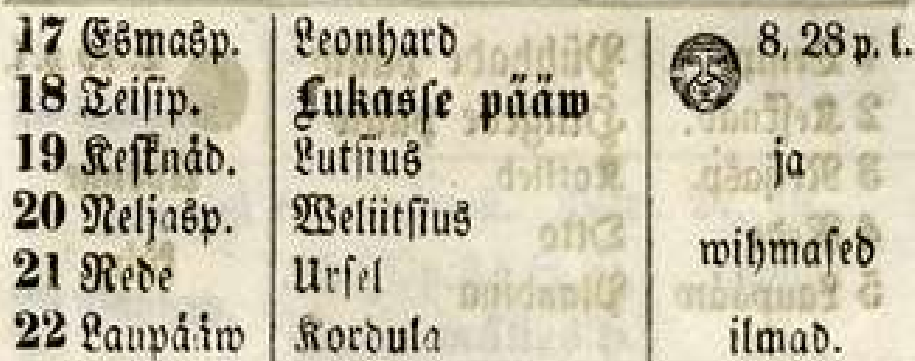 17 Esmasp. Leonhard 8, 28 p. l.
18 Teisip. Lukasse pääw
19 Kesknäd. Lutsius ja
20 Neljasp. Weliitsius wihmased
21 Rede Ursel
22 Laupääw Kordula ilmad.